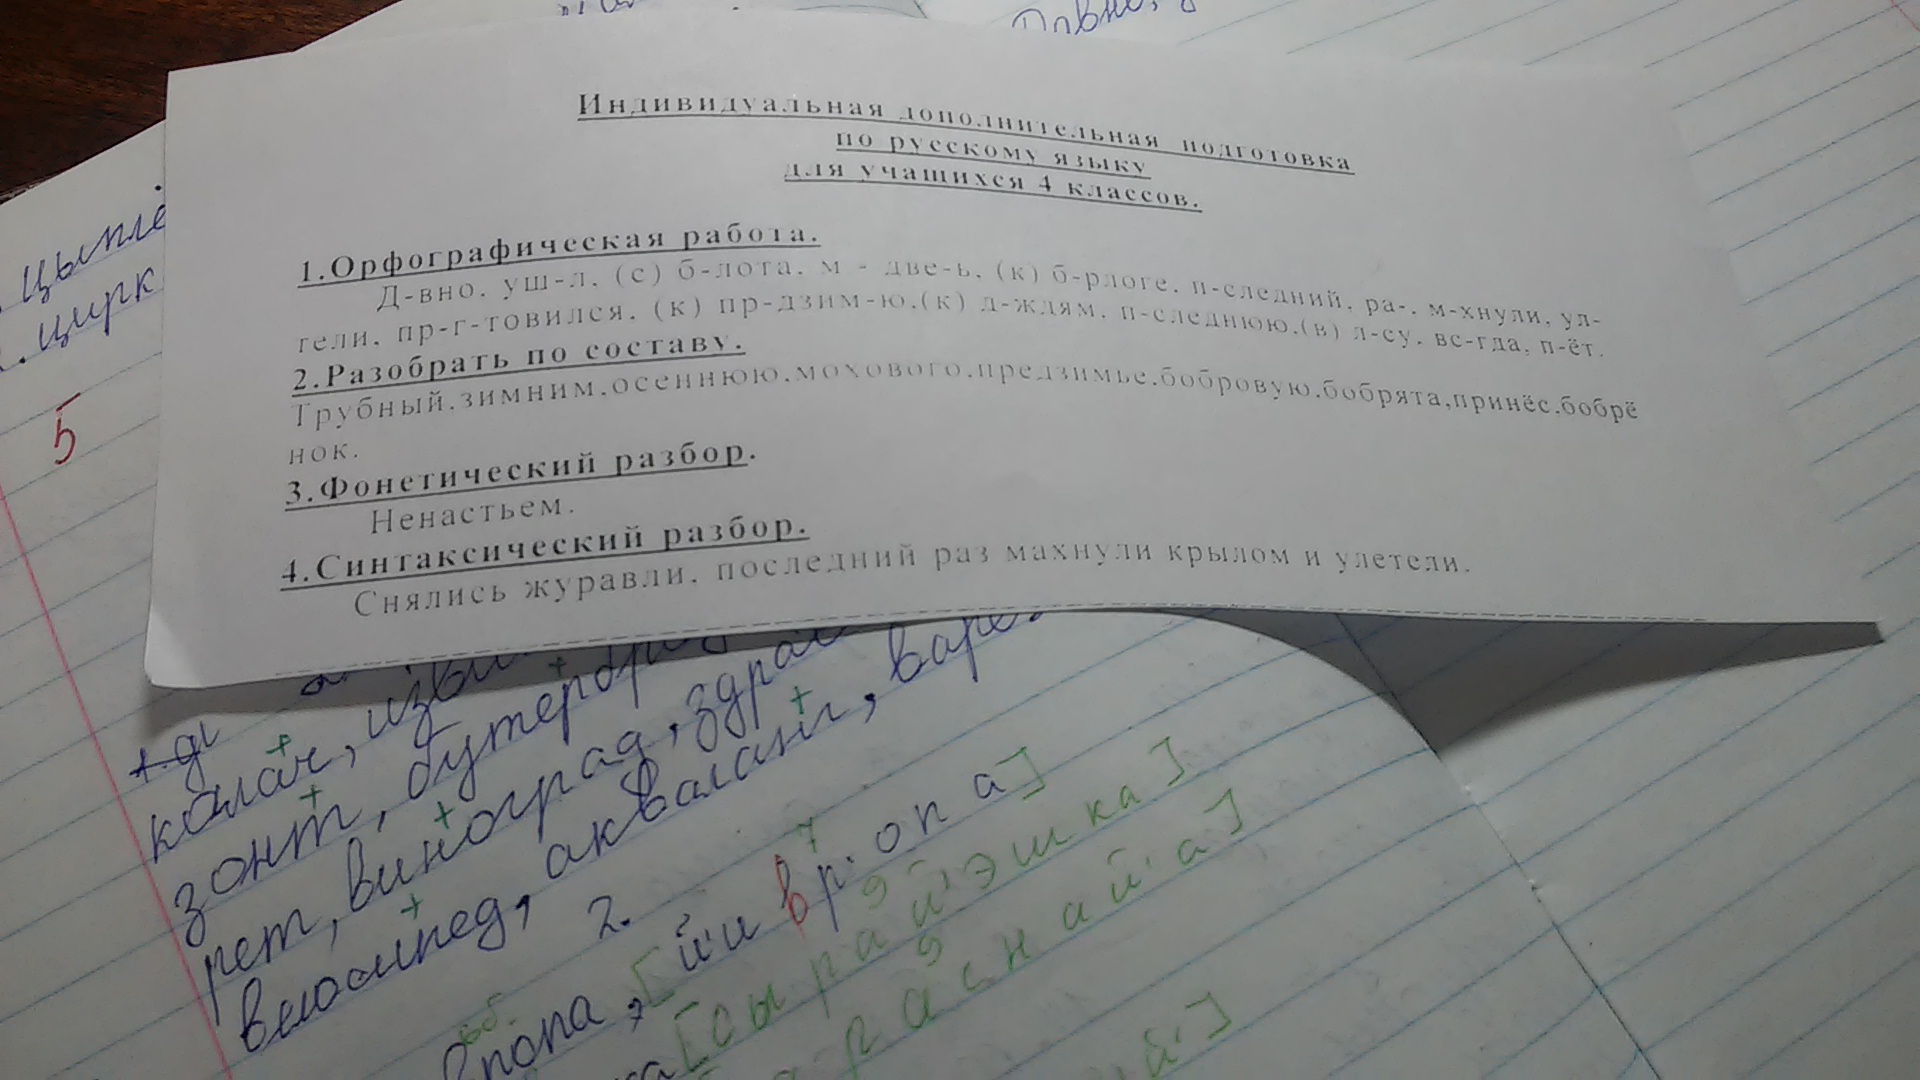 Давно,
Индивидуальная дополнительная подготовка
по русскому языку
для учащихся 4 классов.
1.Орфографическая работа.
Д-вно, уш-л, (с) б-лота, м - две-ь, (к) б-рлоге, п-следний, ра-, м-хнули, ул-
тели, пр-г-товился, (к) пр-дзим-ю,(к) д-ждям, п-следнюю,(в) л-су, вс-гда, п-ёт.
2.Разобрать по составу.
Трубный,зимним,осеннюю,мохового,предзимье,бобровую,бобрята,принёс,бобрё
нок.
3.Фонетический разбор.
Ненастьем.
4.Синтаксический разбор.
Снялись журавли, последний раз махнули крылом и улетели.
цыплё
цирк
5
калач, изви
зонт, бутерброд
рет, виноград, здрав
велосипед, акваланг, варе
2.
[й'и в р о п а]
[с ы р а й' э ш к а]
р а с н а й' а]
й']